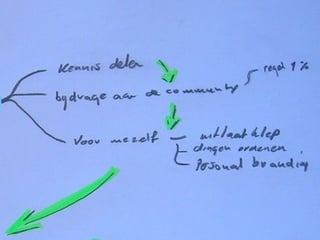 Kennis delen
bijdrage aan de community
regel 1%
Voor mezelf
uitlaatklep
dingen ordenen
Personal branding